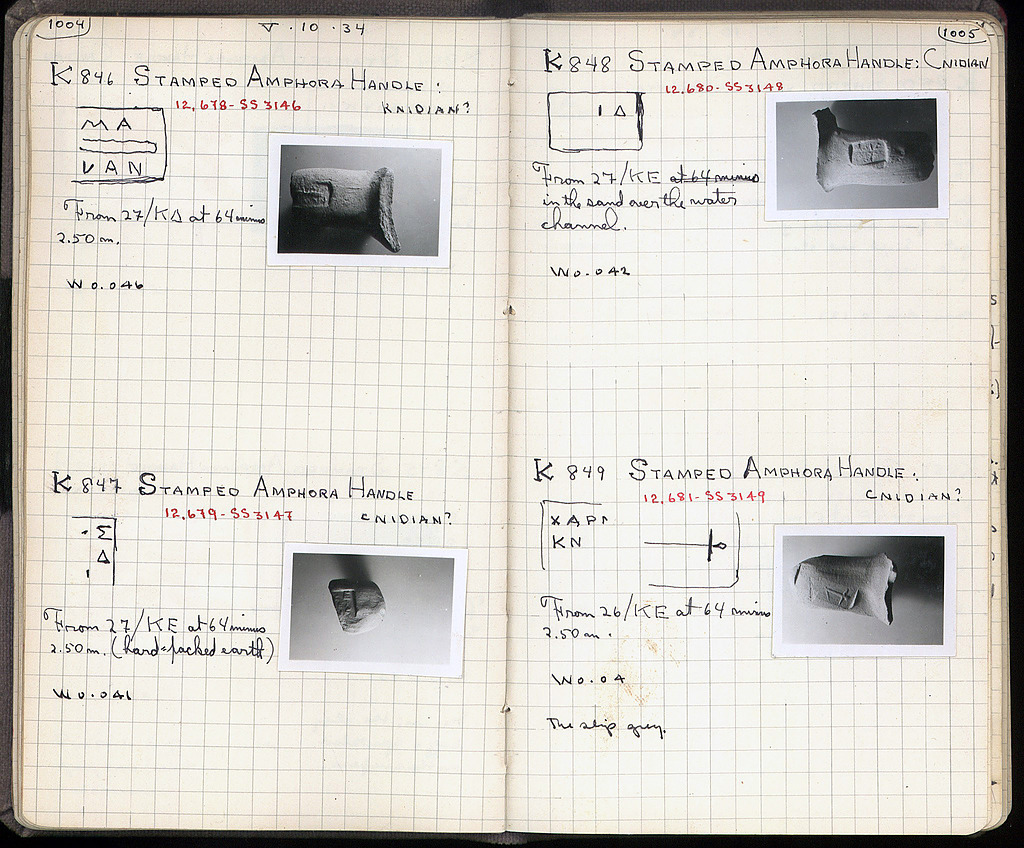 1004
V . 10 . 34
K 846 STAMPED AMPHORA HANDLE :
12.678 - SS 3146 KNIDIAN?
MA
VAN
From 27/KΔ at 64 minus
2.50 m.
W 0.046
K 847 STAMPED AMPHORA HANDLE
12.679 - SS 3147 CNIDIAN?
Σ
Δ
From 27/KE at 64 minus
2.50 m. (hard-packed earth)
W 0.041
1005
K 848 STAMPED AMPHORA HANDLE: CNIDIAN
12.680 - SS 3148
I Δ
From 27/KE at 64 minus
in the sand over the water
channel.
W 0.042
K 849 STAMPED AMPHORA HANDLE :
12.681 - SS 3149 CNIDIAN?
XAPI
KN
From 26/KE at 64 minus
2.50 m.
W 0.04
The slip grey.